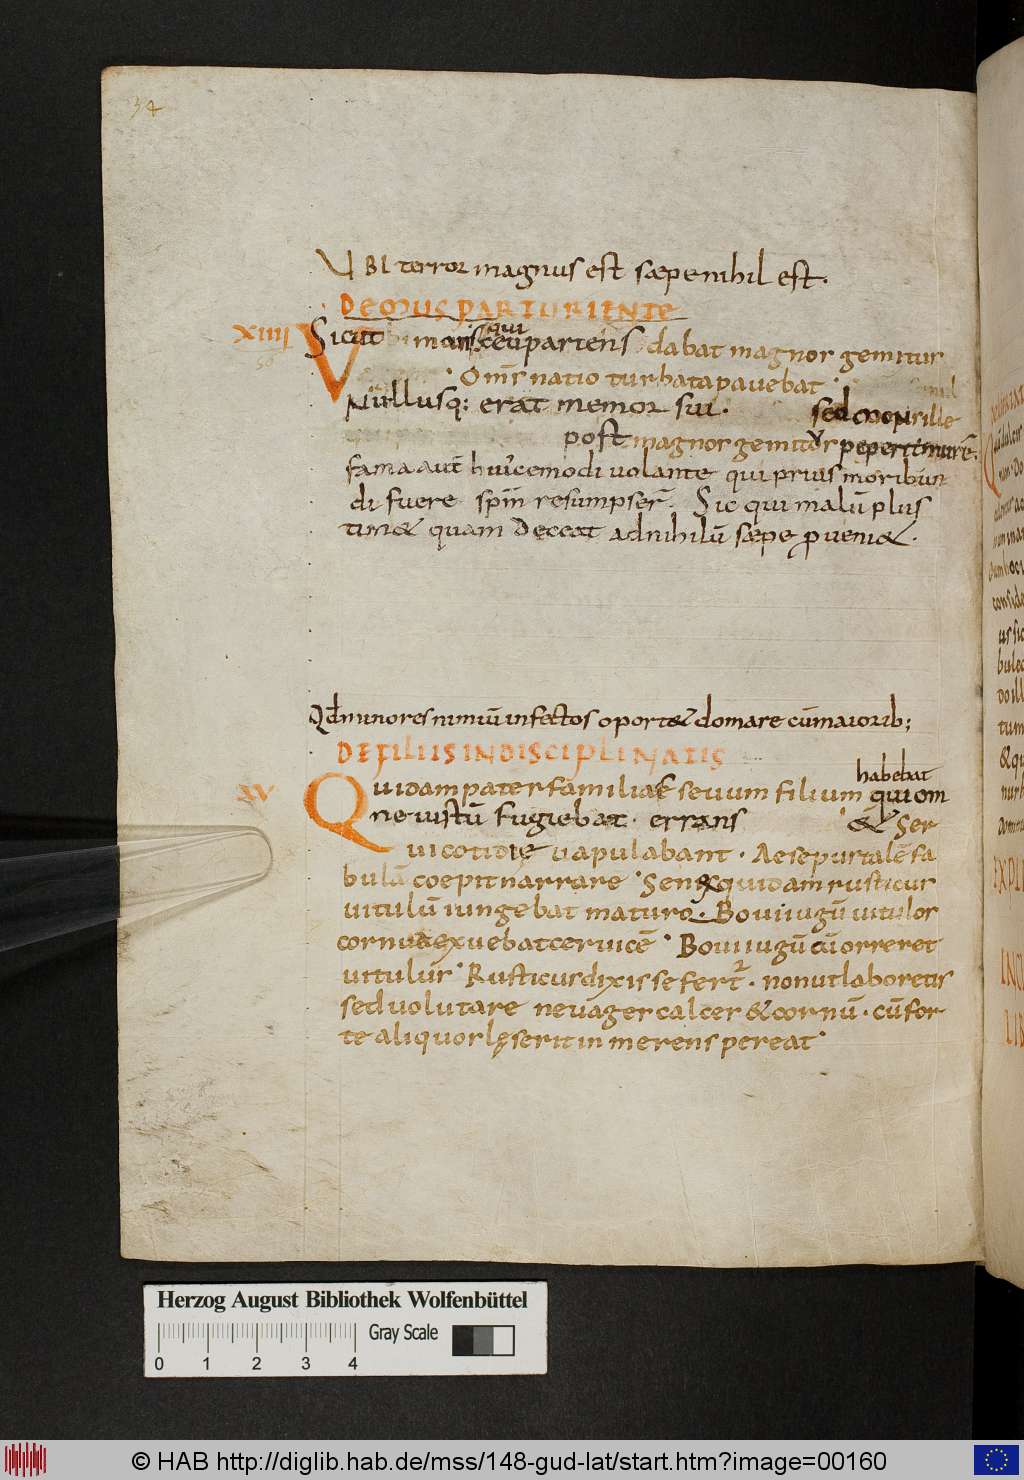 34
UBI terror magnus est sæpe nihil est.
DE MUS PARTURIENTE
XIIII Sicut mons ceu parturiens dabat magnos gemitus
qui
Omīs natio turbata pavebat
Nullusq; erat memor sui. sed
post magnos gemitus
fama aut̄ huiꝰcemodi volante qui prius moribun
di fuere spm̄ resumpser̄. Sic qui malū plus
tim& quam deceat adnihilū sæpe ꝓveni&.
Qd̄ minores nimiū infectos oport& domare cū maiorib;
DE FILIIS INDISCIPLINATIS
XV
habebat
Quidam pater familias sevum filium qui om
ne iustū fugiebat. errans & Ser
vi cotidie vapulabant. Aesepus talē fa
bulā coepit narrare Senex quidam rusticus
vitulū iungebat maturo. Bovi iugū vitulos
cornu & exuebat cervicē Bovi iugū cū orreret
vitulus Rusticus dixisse fert². non ut laboretis
sed volutare ne vager calcer & cornū. cū for
te aliquos lęserit in merens pereat
Herzog August Bibliothek Wolfenbüttel
Gray Scale
0 1 2 3 4
© HAB http://diglib.hab.de/mss/148-gud-lat/start.htm?image=00160